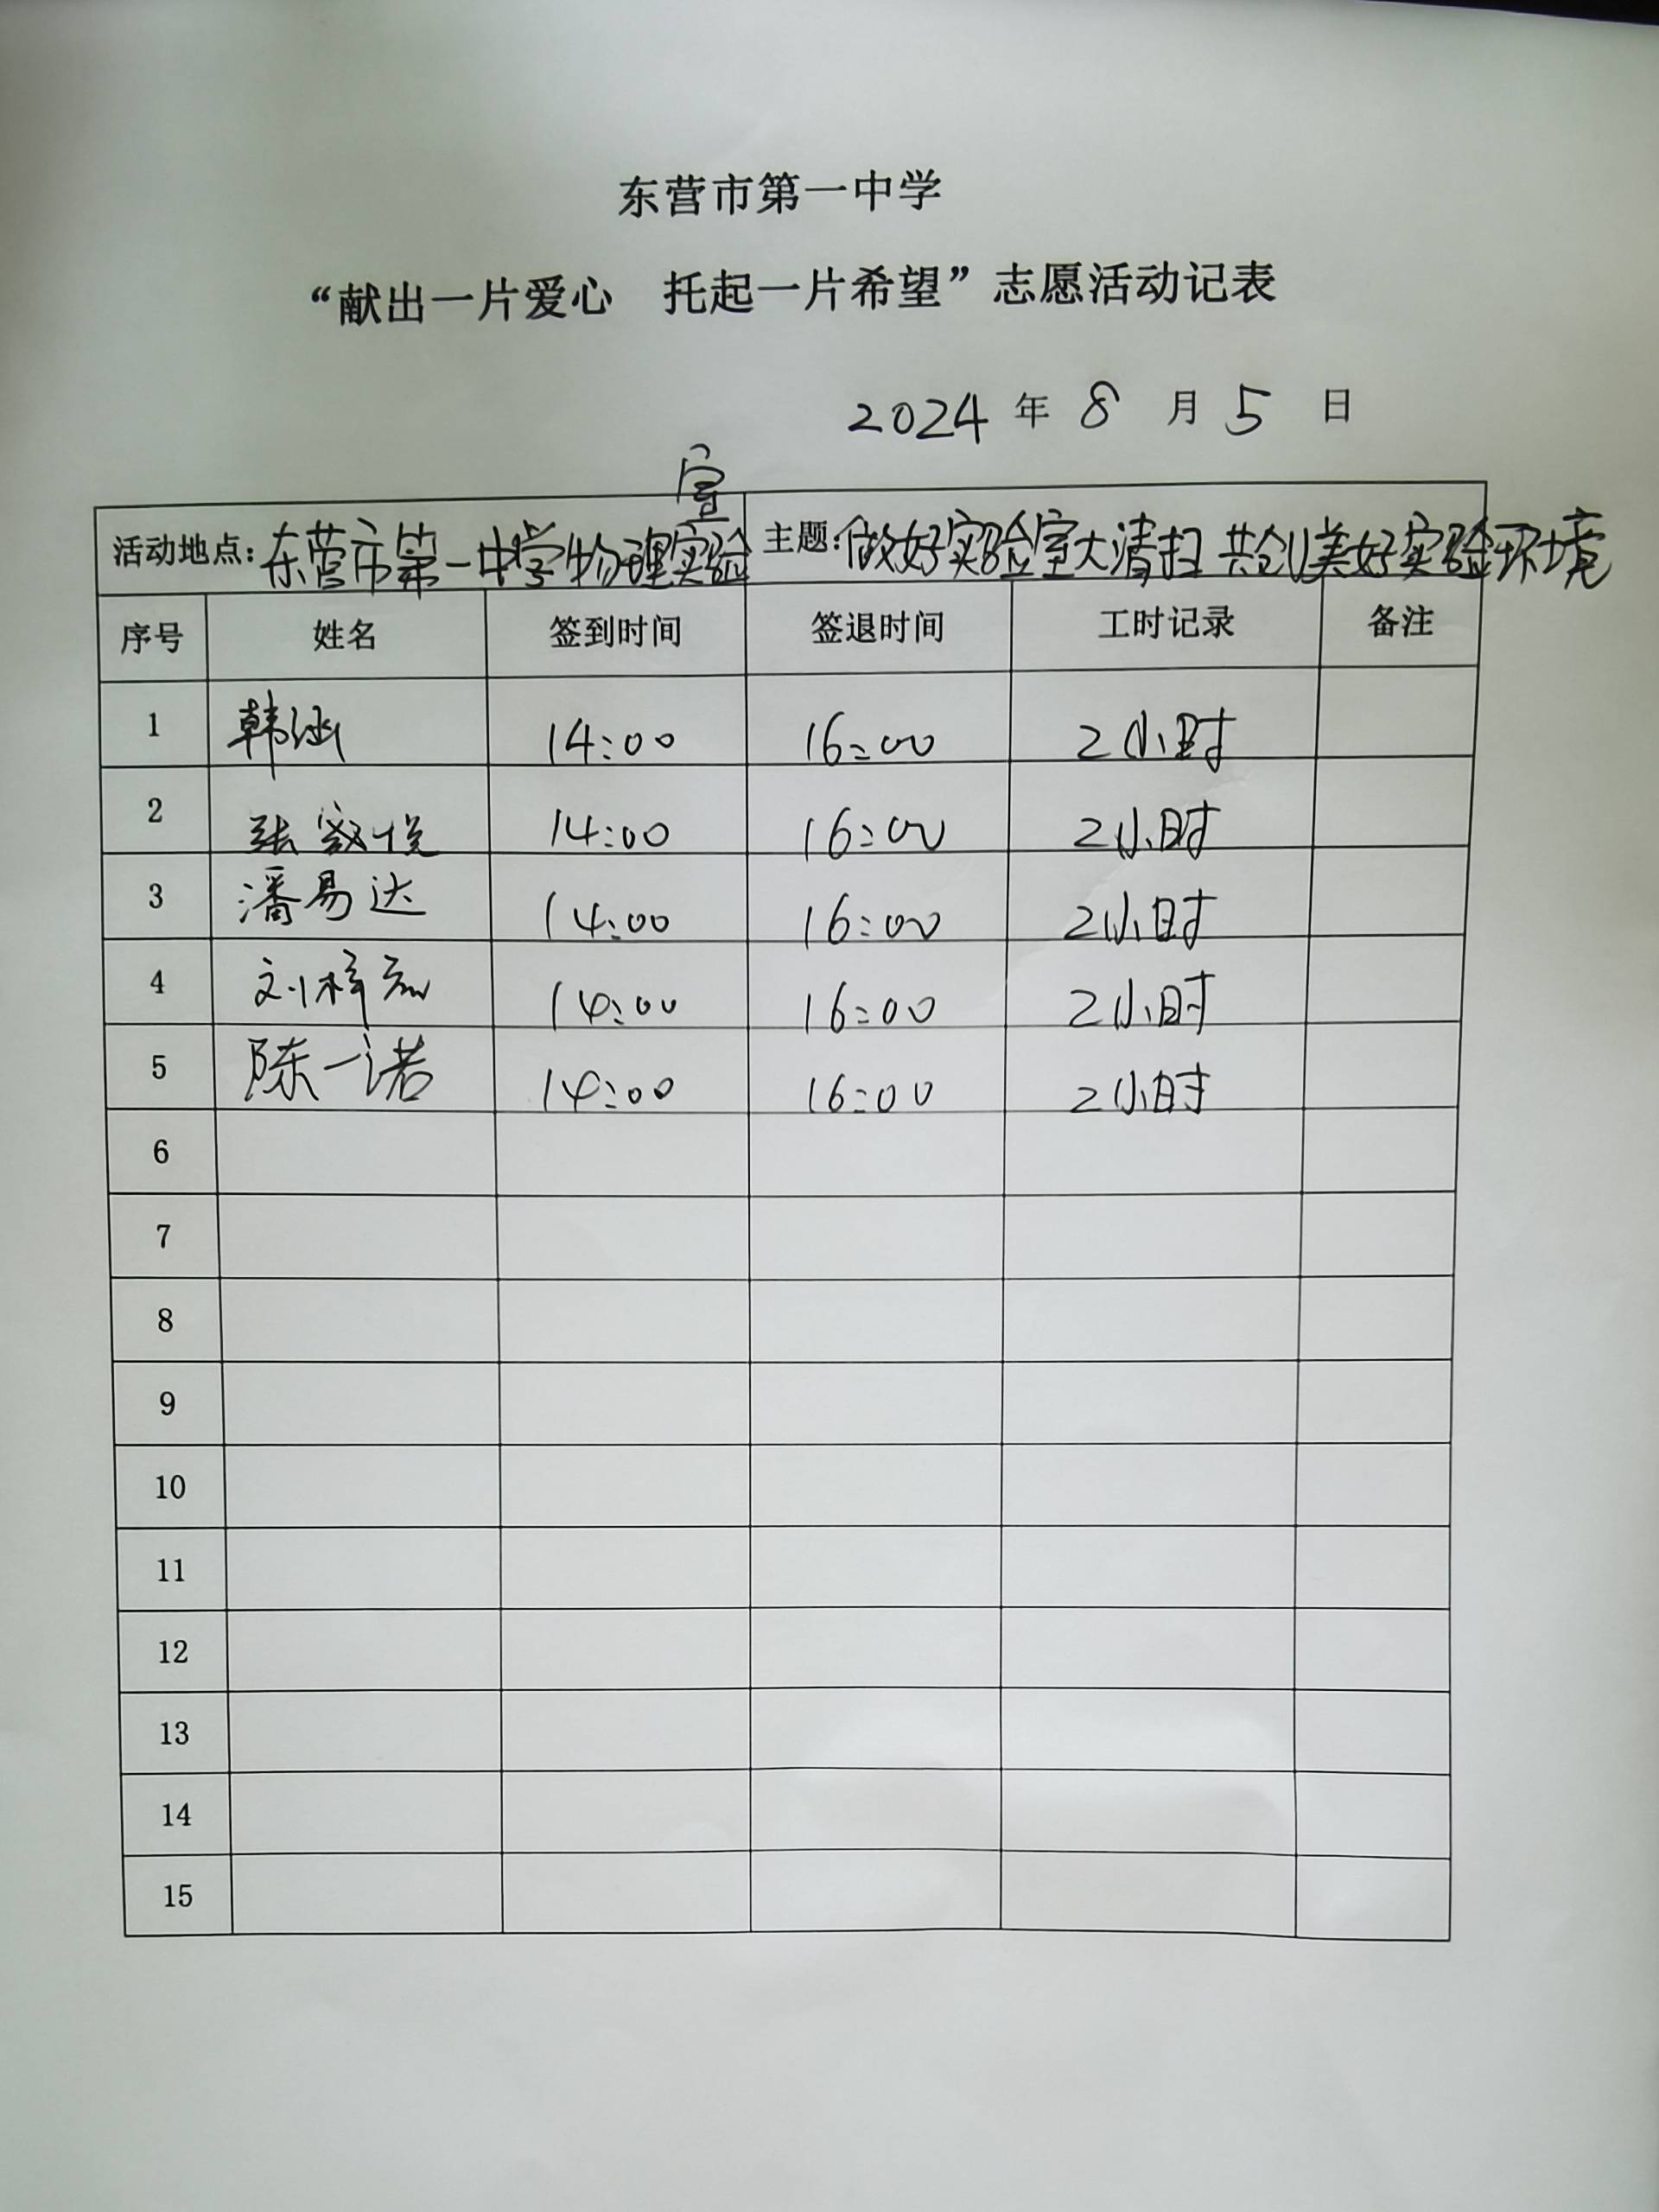 东营市第一中学
“献出一片爱心 托起一片希望”志愿活动记表
2024 年 8 月 5 日
活动地点:东营市第一中学物理实验室 主题:做好实验室大清扫 共创美好实验环境
序号 姓名 签到时间 签退时间 工时记录 备注
1 韩涵 14:00 16:00 2小时
2 张悦 14:00 16:00 2小时
3 潘易达 14:00 16:00 2小时
4 刘梓 14:00 16:00 2小时
5 陈一诺 14:00 16:00 2小时
6
7
8
9
10
11
12
13
14
15